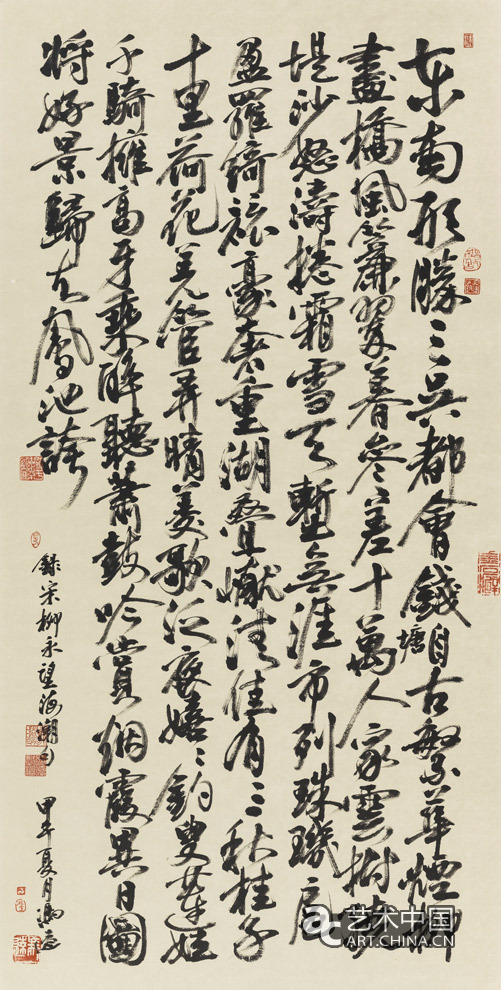 東南形勝三吳都會錢塘自古繁華煙柳
畫橋風簾翠暮參差十萬人家雲樹繞
堤沙怒濤捲霜雪天塹無涯市列珠璣戶
盈羅綺競豪奢重湖疊巘清佳有三秋桂子
十里荷花羌管弄晴菱歌泛夜嬉〻釣叟蓮娃
千騎擁高牙乘醉聽蕭鼓吟賞烟霞異日圖
將好景歸去鳳池誇
錄宋柳永望海潮
甲午夏月
艺术中国
ART.CHINA.CN